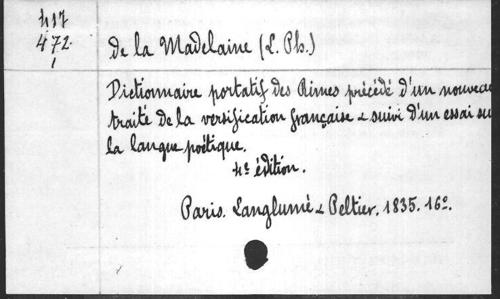 417
472
1
de la Madelaine (L. Ph.)
Dictionnaire portatif des Rimes précédé d'un nouveau
traité de la versification française & suivi d'un essai su
la langue poëtique.
4e édition.
Paris. Langlumé & Peltier. 1835. 16o.